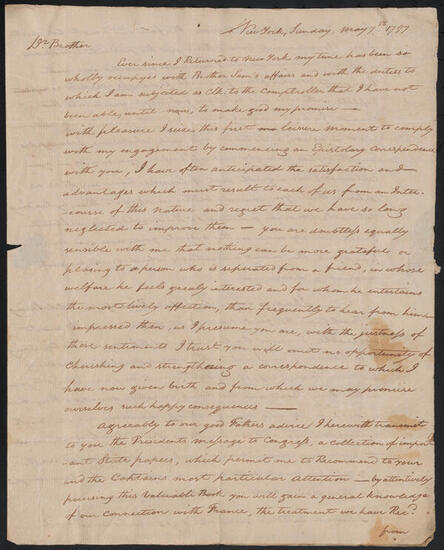 New York, Sunday, May 7th 1797
Dr Brother
Ever since I Returned to New York my time has been so
wholly occupyed with Brother Sam's affairs and with the duties to
which I am subjected as Clk: to the Comptroller that I have not
been able, until now, to make good my promise —
with pleasure I use this first leisure moment to comply
with my engagement by commencing an Epistolary Correspondence
with you, I have often anticipated the satisfaction and
advantages which must result to each of us from an Inter-
course of this Nature and regret that we have so long
neglected to improve them — you are doubtless equally
sensible with me that nothing can be more grateful or
pleasing to a person who is seperated from a friend, in whose
welfare he feels greatly interested and for whom he intertains
the most lively affection, than frequently to hear from him —
impressed then, as I presume you are, with the justness of
these sentiments I trust you will omit no opportunity of
Cherishing and strengthening a correspondence to which I
have now given birth and from which we may promise
ourselves such happy consequences —
Agreeably to our good Fathers advice I herewith transmit
to you the Presidents message to Congress, a collection of import
ant State papers, which permit me to Recommend to your
and the Captains most particular Attention — by attentively
peruseing this valuable Book you will gain a general knowledge
of our Connection with France, the treatment we have Recd
from